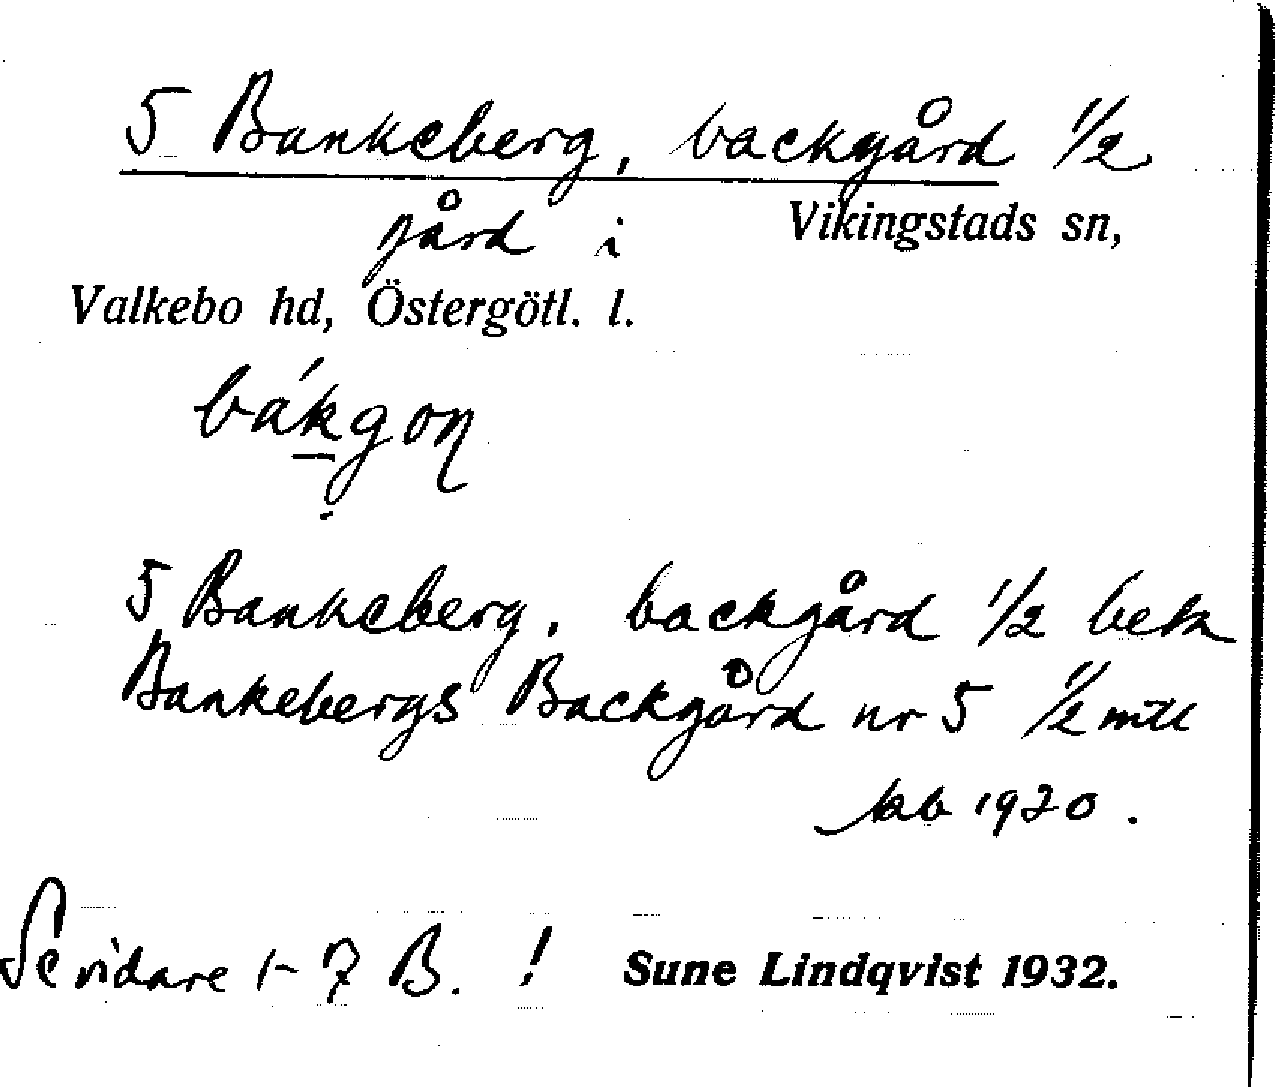 5 Bankeberg, backgård 1/2
gård i Vikingstads sn,
Valkebo hd, Östergötl. l.
bákgoṇ
5 Bankeberg, backgård 1/2 beta
Bankebergs Backgård nr 5 1/2 mtl
1920.
Se vidare 1-7 B. ! Sune Lindqvist 1932.